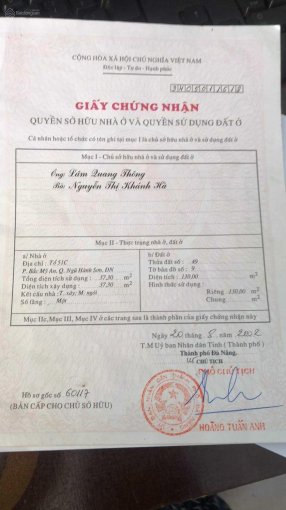 CỘNG HÒA XÃ HỘI CHỦ NGHĨA VIỆT NAM
Độc lập - Tự do - Hạnh phúc
GIẤY CHỨNG NHẬN
QUYỀN SỞ HỮU NHÀ Ở VÀ QUYỀN SỬ DỤNG ĐẤT Ở
Cá nhân hoặc tổ chức có tên ghi tại mục I là chủ sở hữu nhà ở và sử dụng đất ở
Mục I - Chủ sở hữu nhà ở và sử dụng đất ở
Ông: Lâm Quang Thông
Bà: Nguyễn Thị Khánh Hà
Mục II - Thực trạng nhà ở, đất ở
a/ Nhà ở
Địa chỉ : Tổ 51C
P. Bắc Mỹ An, Q. Ngũ Hành Sơn, ĐN
Tổng diện tích sử dụng : 37,30 m2
Diện tích xây dựng : 37,30 m2
Kết cấu nhà : T. xây; M. ngói
Số tầng : Một
b/ Đất ở
Thửa đất số : 49
Tờ bản đồ số : 9
Diện tích : 130,00 m2
Hình thức sử dụng :
Riêng : 130,00 m2
Chung m2
Mục IIc, Mục III, Mục IV ở các trang sau là thành phần của giấy chứng nhận này
Ngày 20 tháng 5 năm 2002
T.M Uỷ ban Nhân dân Tỉnh ( Thành phố )
Thành phố Đà Nẵng.
CHỦ TỊCH
PHÓ CHỦ TỊCH
Hồ sơ gốc số 60117
(BẢN CẤP CHO CHỦ SỞ HỮU)
HOÀNG TUẤN ANH